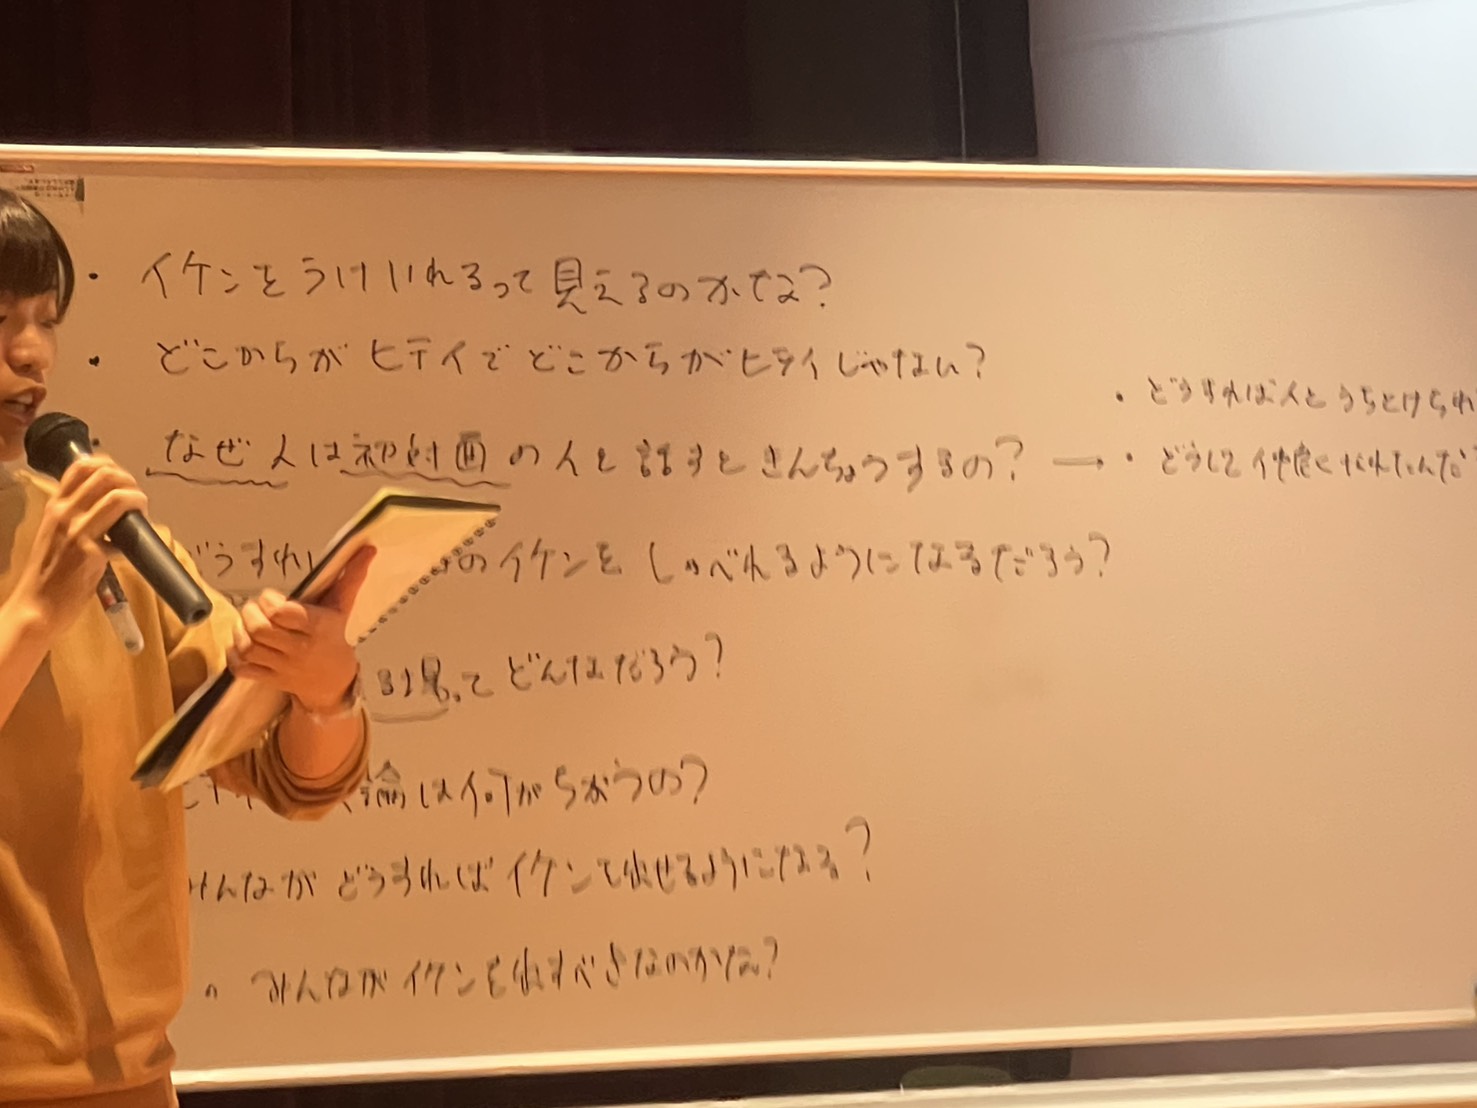 ・イケンをうけいれるって見えるのかな?
・どこからがヒテイでどこからがヒテイじゃない?
・なぜ人は初対面の人と話すときんちょうするの? → ・どうして仲良くなれたんだ
・どうすれば人とうちとけられ
どうすれ のイケンをしゃべれるようになるだろう?
ってどんなだろう?
論は何がちがうの?
みんながどうすればイケンを出せるようになる?
・みんながイケンを出すべきなのかな?